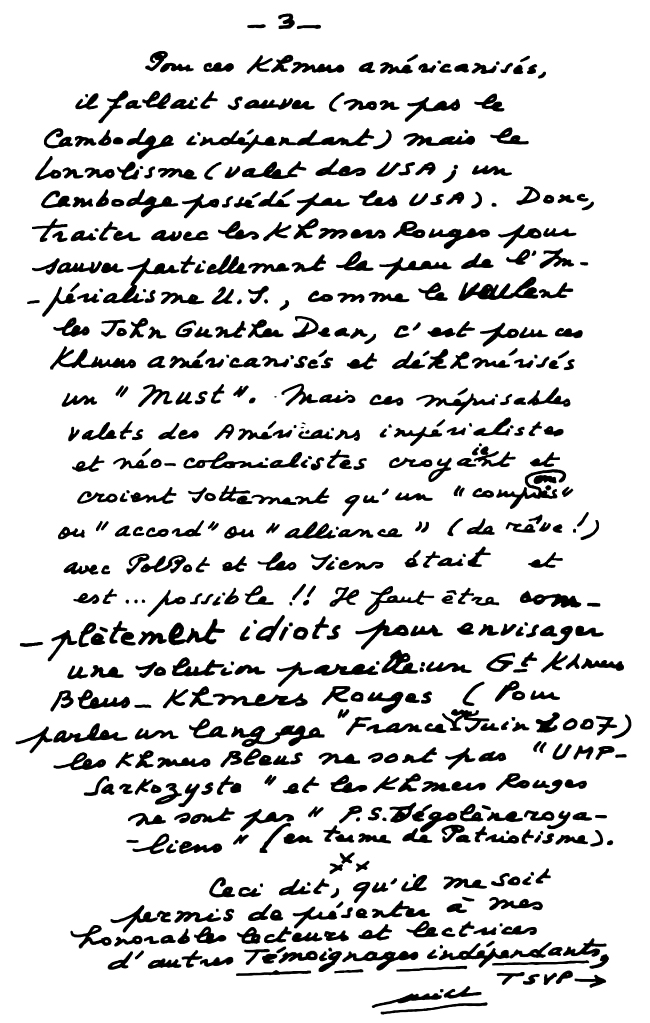 — 3 —
Pour ces Khmers américanisés,
il fallait sauver (non pas le
Cambodge indépendant) mais le
lonnolisme (valet des USA ; un
Cambodge possédé par les USA). Donc,
traiter avec les Khmers Rouges pour
sauver partiellement la peau de l'Im-
-périalisme U.S., comme le veulent
les John Gunther Dean, c'est pour ces
Khmers américanisés et dékhmérisés
un "Must". Mais ces méprisables
valets des Américains impérialistes
et néo-colonialistes croyaient et
croient sottement qu'un "compromis"
ou "accord" ou "alliance" (de rêve !)
avec PolPot et les siens était et
est... possible !! Il faut être com-
-plètement idiots pour envisager
une solution pareille : un Gt Khmers
Bleus - Khmers Rouges (Pour
parler un langage "France en Juin 2007)
les Khmers Bleus ne sont pas "UMP-
Sarkozyste" et les Khmers Rouges
ne sont pas "P.S. Ségolèneroya-
-liens" (en terme de Patriotisme).
xxx
Ceci dit, qu'il me soit
permis de présenter à mes
honorables lecteurs et lectrices
d'autres Témoignages indépendants,
TSVP →